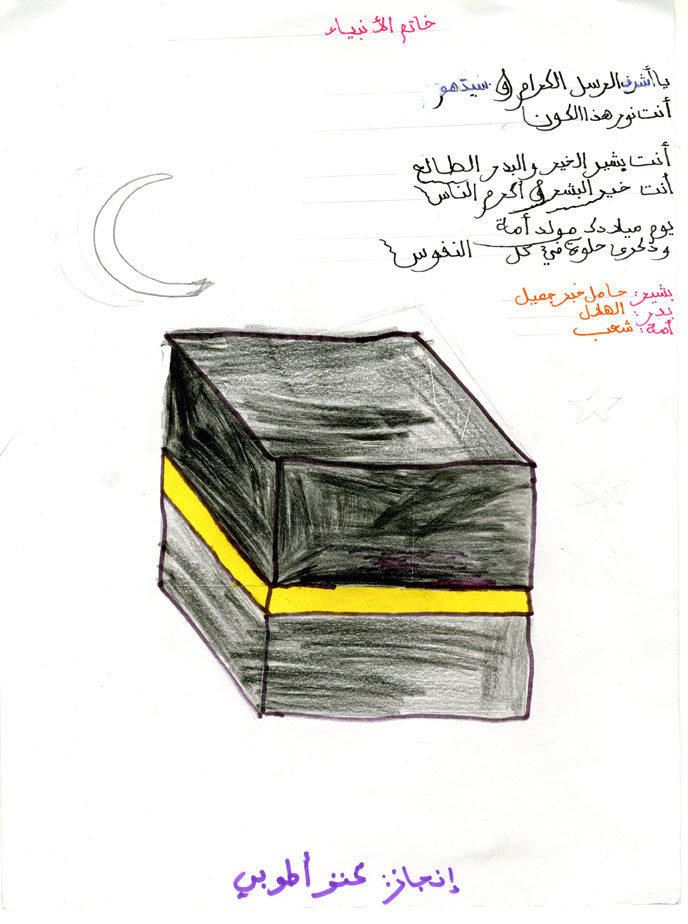 خاتم الأنبياء
يا أشرف الرسل الكرام و سيدهم
أنت نور هذا الكون
أنت بشير الخير والبدر الطالع
أنت خير البشر و أكرم الناس
يوم ميلادك مولد أمة
وذكرى حلوة في كل النفوس
بشير: حامل خبر جميل
بدر: الهلال
أمة: شعب
إنجاز: